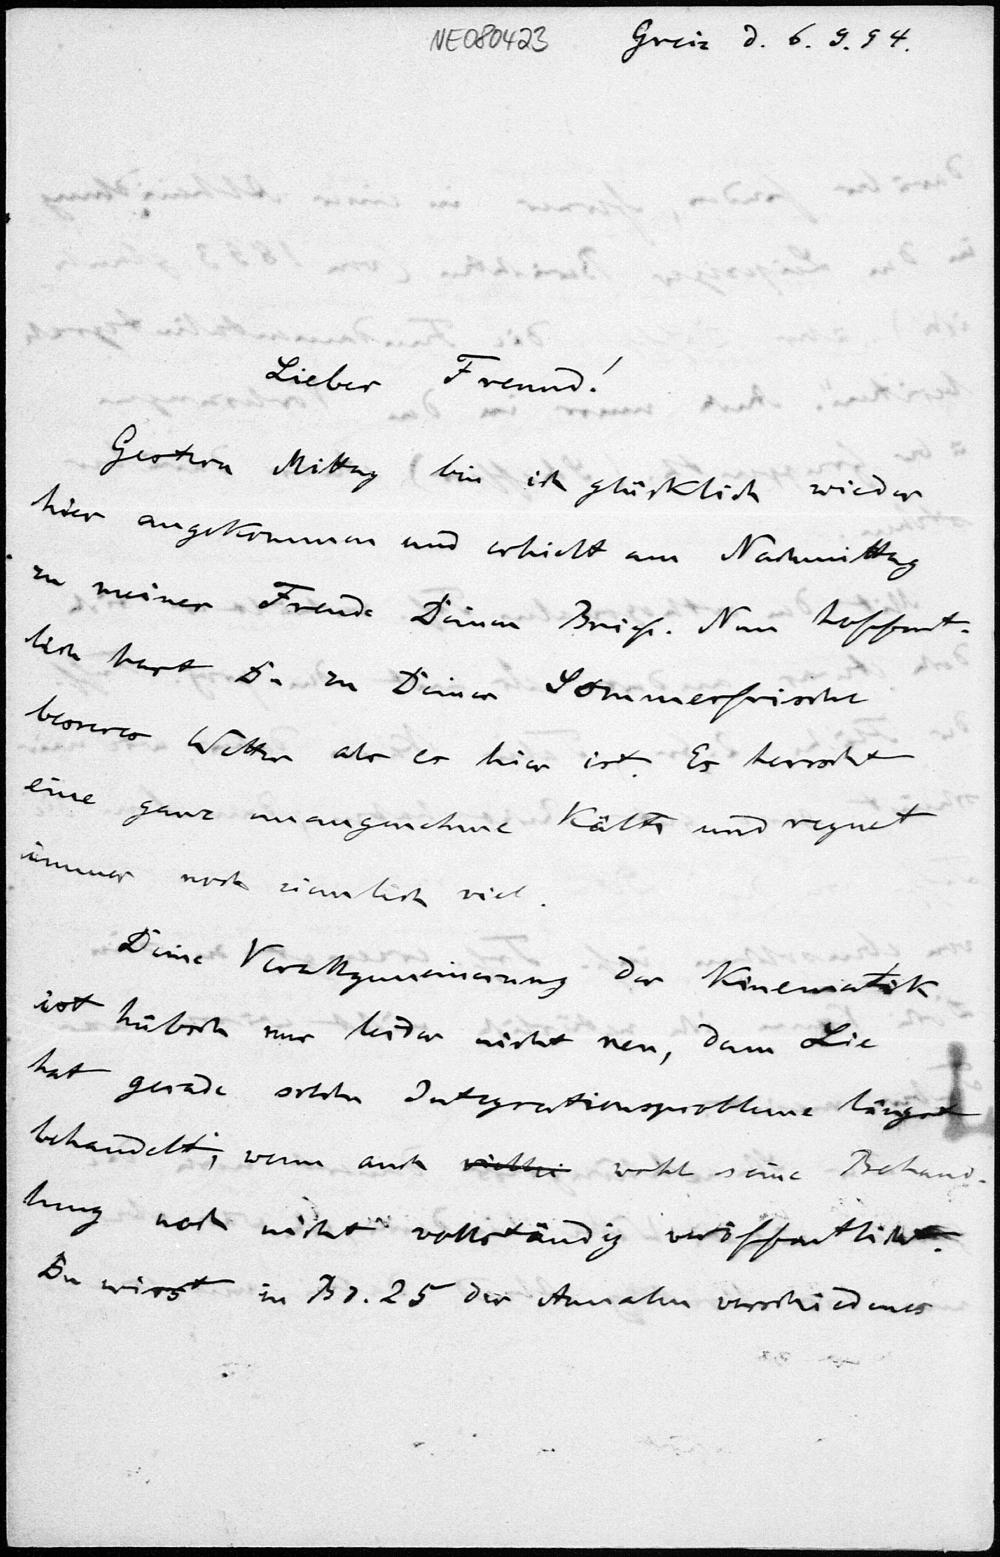 NE080423 Greiz d. 6. 9. 94.
Lieber Freund!
Gestern Mittag bin ich glücklich wieder
hier angekommen und erhielt am Nachmittag
zu meiner Freude Deinen Brief. Nun hoffent-
lich hast Du zu Deiner Sommerfrische
besseres Wetter als es hier ist. Es herrscht
eine ganz unangenehme Kälte und regnet
immer noch ziemlich viel.
Deine Verallgemeinerung der Kinematik
ist hübsch nur leider nicht neu, denn Lie
hat gerade solche Integrationsprobleme längst
behandelt, wenn auch wohl seine Behand-
lung noch nicht vollständig veröffentlicht.
Du wirst in Bd. 25 der Annalen verschiedenes